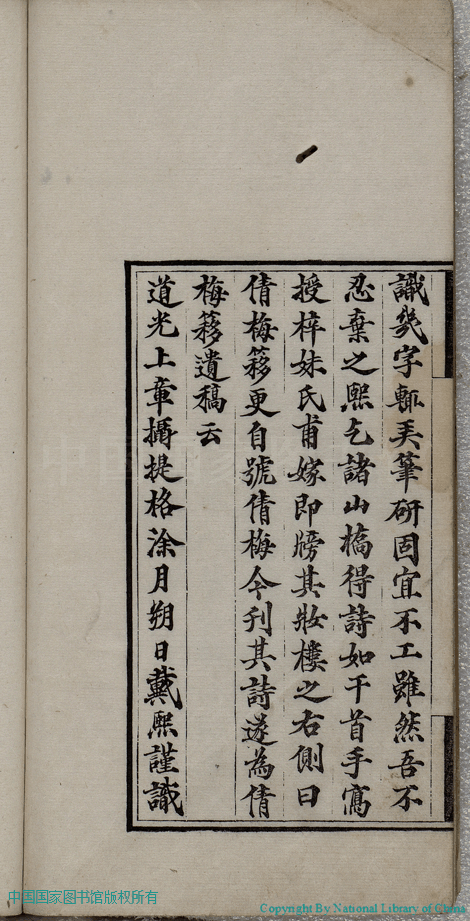 識幾字輒弄筆研固宜不工雖然吾不
忍棄之熙乞諸山橋得詩如干首手寫
授梓妹氏甫嫁即牓其妝樓之右側曰
倩梅簃更自號倩梅今刊其詩遂為倩
梅簃遺稿云
道光上章攝提格涂月朔日戴熙謹識
中国国家图书馆版权所有
Copyright By National Library of China